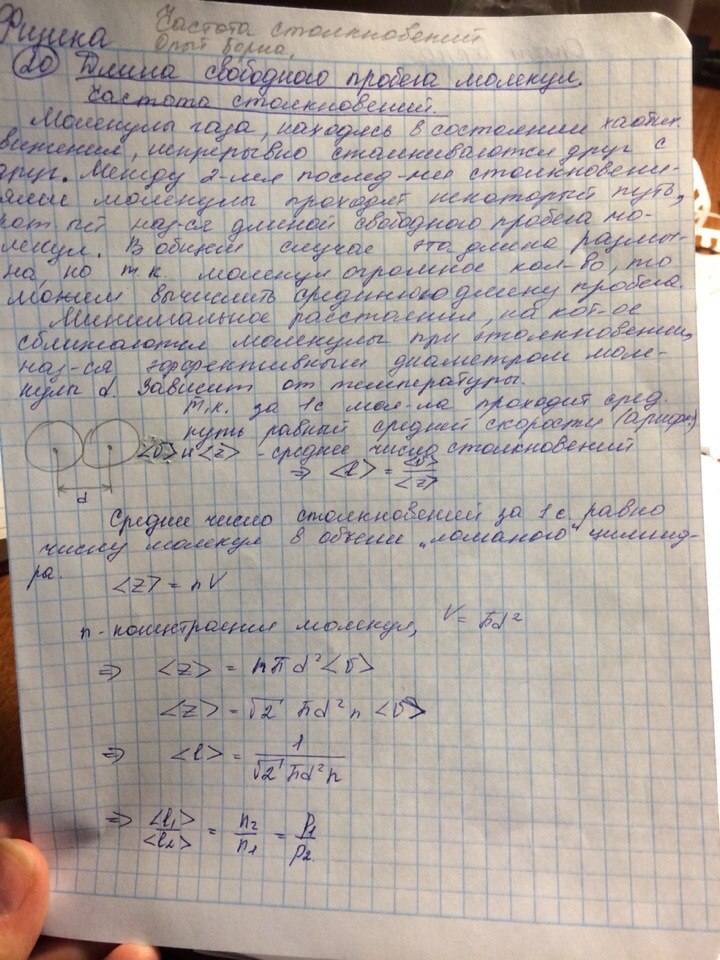 Физика
Частота столкновений
Опыт Борна.
20 Длина свободного пробега молекул.
Частота столкновений.
Молекулы газа, находясь в состоянии хаотич.
движения, непрерывно сталкиваются друг с
друг. Между 2-мя послед-ми столкновени-
ями молекулы проходят некоторый путь,
кот-ый наз-ся длиной свободного пробега мо-
лекул. В общем случае эта длина разли-
на, но т.к. молекул огромное кол-во, то
можем вычислить среднюю длину пробега.
Минимальное расстояние, на кот-ое
сближаются молекулы при столкновении,
наз-ся эффективным диаметром моле-
кулы d. Зависит от температуры.
Т.к. за 1с мол-ла проходит сред.
путь равный средней скорости (арифм)
<υ> и <z> - среднее число столкновений
⇒ <l> = <υ>/<z>
d
Среднее число столкновений за 1с равно
числу молекул в объеме „ломаного" цилинд-
ра.
<z> = nV
n - концентрация молекул, V = πd²
⇒ <z> = nπd²<υ>
<z> = √2 πd²n <υ>
⇒ <l> = 1/(√2 πd²n)
⇒ <l₁>/<l₂> = n₂/n₁ = p₁/p₂